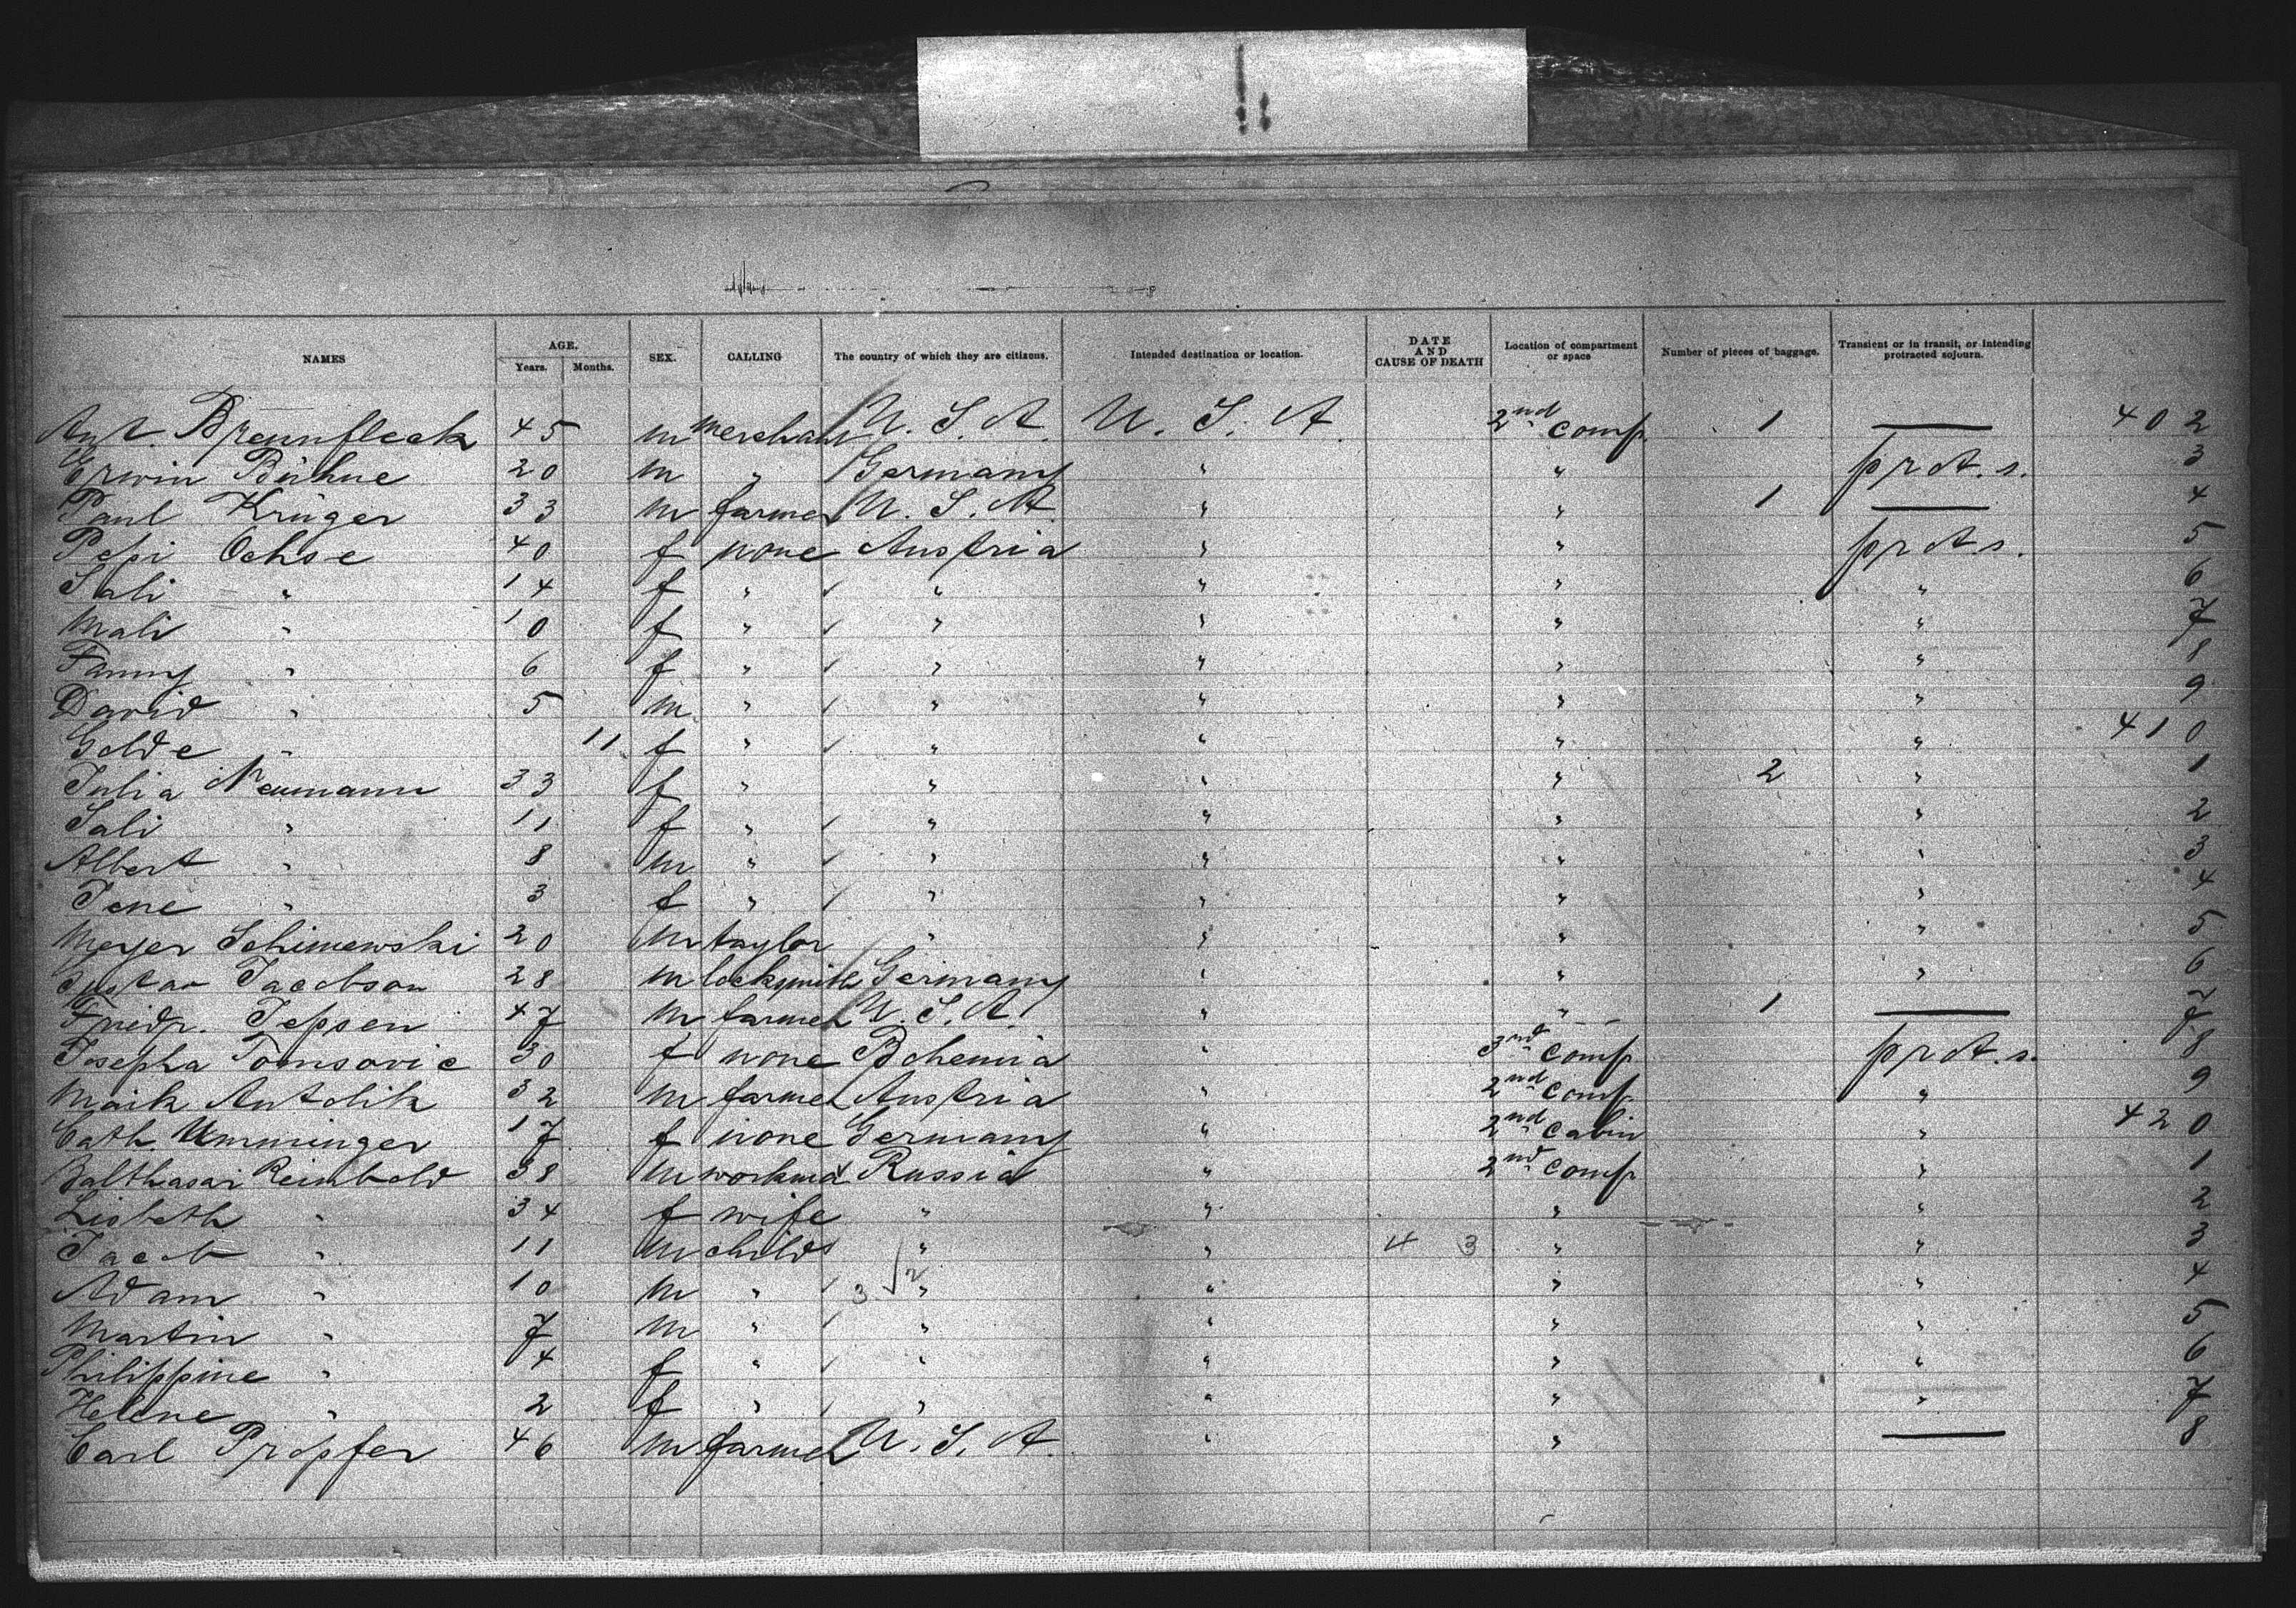 NAMES AGE. Years. Months. SEX. CALLING The country of which they are citizens. Intended destination or location. DATE AND CAUSE OF DEATH Location of compartment or space Number of pieces of baggage. Transient or in transit, or intending protracted sojourn.
Ant. Brennfleck 45 m merchant U. S. A. U. S. A. 2nd comp 1 — 402
Erwin Bühne 20 m " Germany " " prot. s. 3
Paul Krüger 33 m farmer U. S. A. " " 1 — 4
Pepi Ochse 40 f none Austria " " prot. s. 5
Sali " 14 f " " " " " 6
Mali " 10 f " " " " " 7
Fanny " 6 f " " " " " 8
David " 5 m " " " " " 9
Golde " 11 f " " " " " 410
Julia Neumann 33 f " " " " 2 " 1
Sali " 11 f " " " " " 2
Albert " 8 m " " " " " 3
Jene " 3 f " " " " " 4
Meyer Schimewski 20 m taylor " " " " 5
Gustav Jacobson 28 m locksmith Germany " " " 6
Friedr. Jepsen 47 m farmer U. S. A. " " 1 — 7
Josepha Tomsovic 30 f none Bohemia " 3nd comp prot. s. 8
Maik Antolik 32 m farmer Austria " 2nd comp " 9
Cath. Umminger 17 f none Germany " 2nd cabin " 420
Balthasar Reinbold 38 m workma Russia " 2nd comp " 1
Lisbeth " 34 f wife " " " " 2
Jacob " 11 m child " " 4 3 " " 3
Adam " 10 m " 3 2 " " " " 4
Martin " 7 m " " " " " 5
Philippine " 4 f " " " " " 6
Helene " 2 f " " " " " 7
Carl Propfer 46 m farmer U. S. A. " " — 8